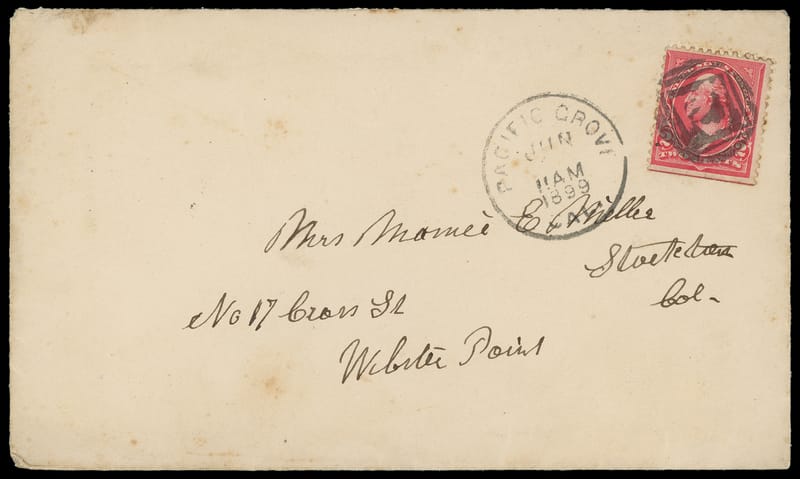 PACIFIC GROVE
JUN
11AM
1899
CAL
Mrs Mamie E. Miller
Stockton
Cal-
No 17 Cross St
Webster Point
TWO